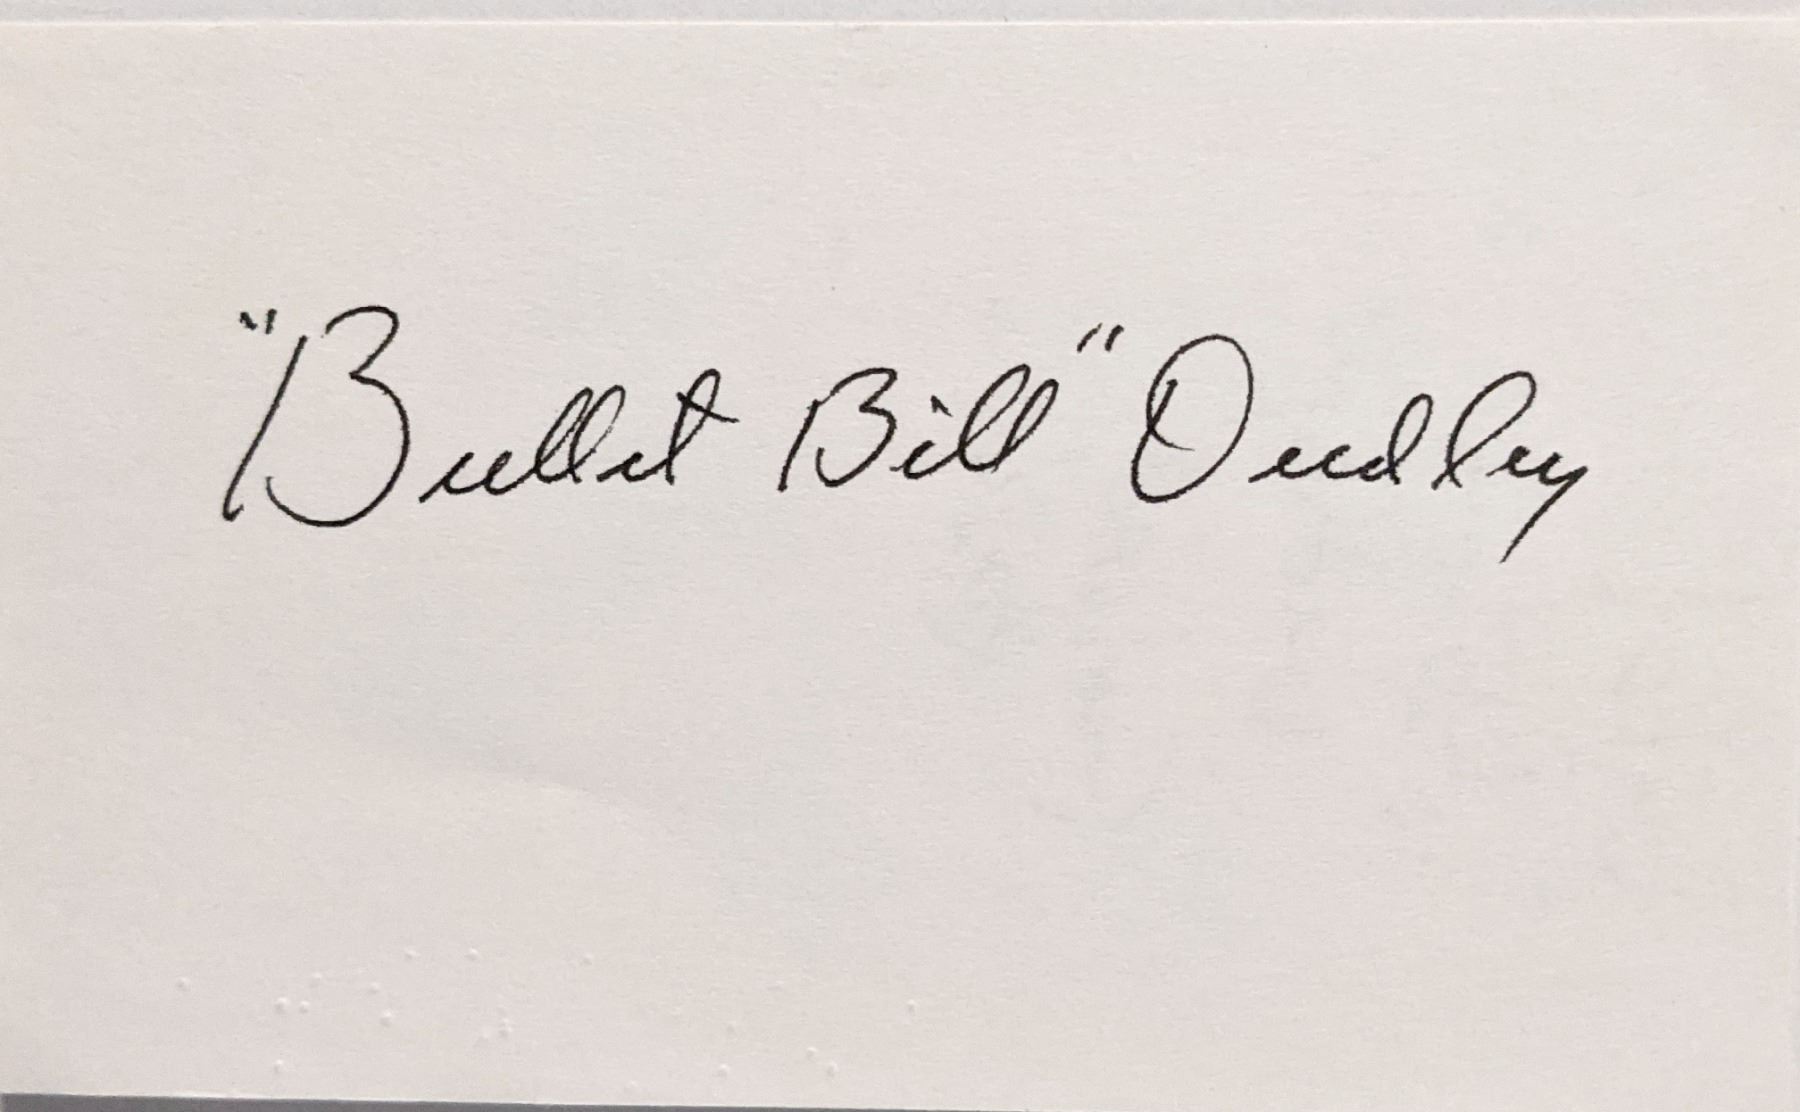 "Bullet Bill" Dudley